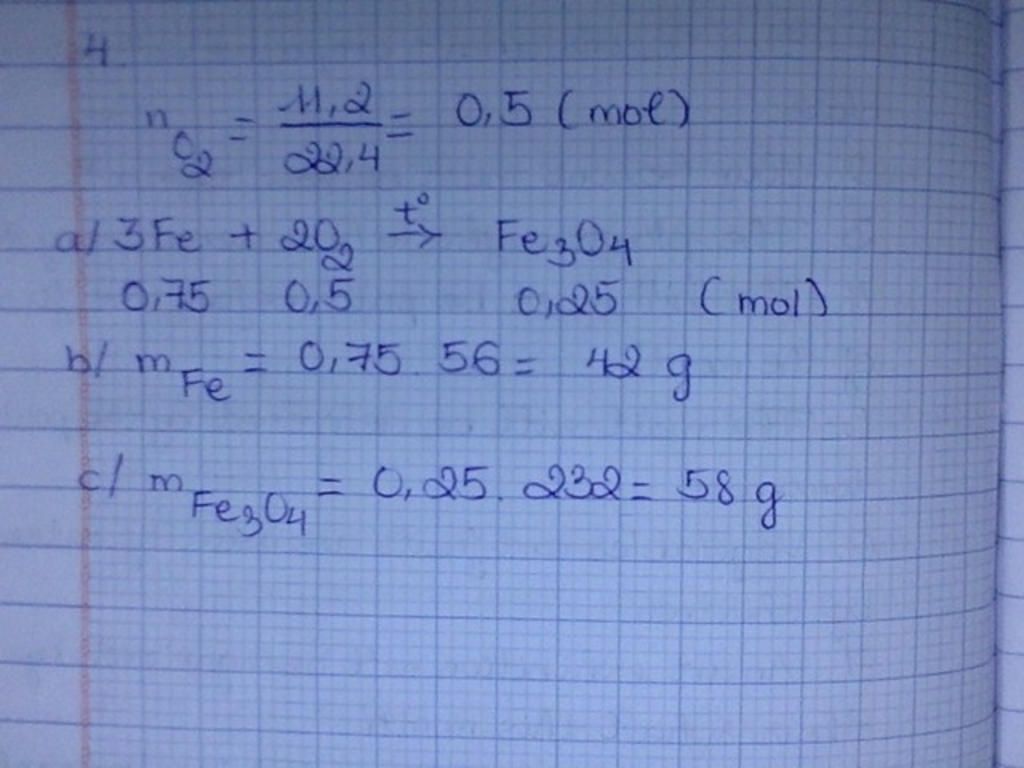 4.
n O₂ = 11,2 / 22,4 = 0,5 (mol)
a/ 3Fe + 2O₂ t° → Fe₃O₄
0,75 0,5 0,25 (mol)
b/ m Fe = 0,75 . 56 = 42 g
c/ m Fe₃O₄ = 0,25 . 232 = 58 g